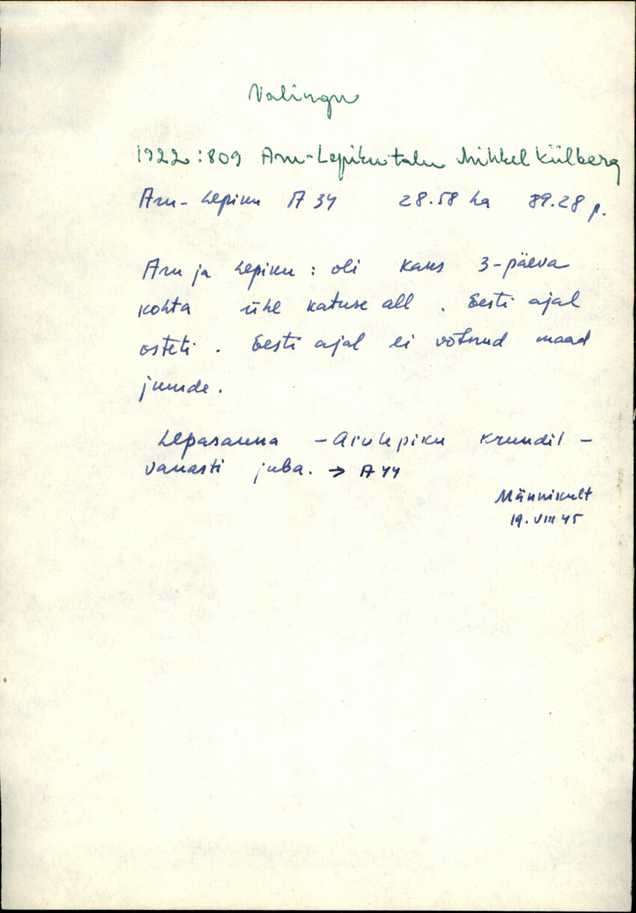 Valingu
1922:809 Aru-Lepiku talu Mihkel Külberg
Aru-Lepiku A 34 28.58 ha 89.28 p.
Aru ja Lepiku : oli kaks 3-päeva
kohta ühe katuse all . Eesti ajal
osteti . Eesti ajal ei võtnud maad
juurde .
Lepasauna - Arulepiku krundil -
vanasti juba. → A 44
Männikult
19. VIII 45